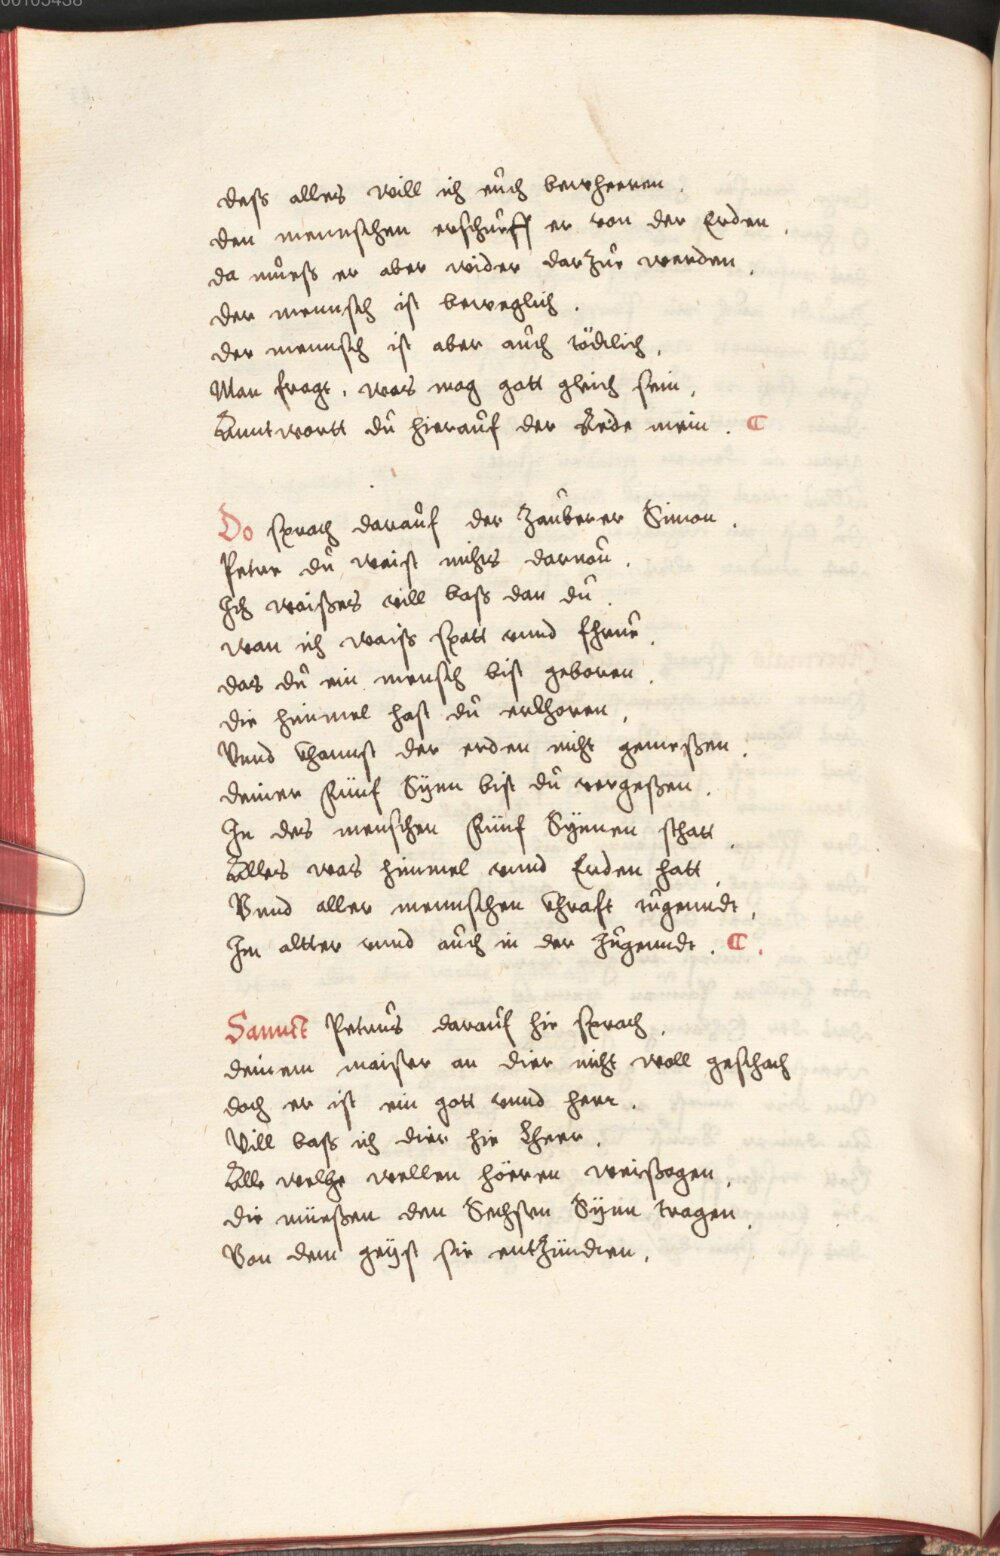 00105438
deß alles will ich eůch bewheeren.
den mennschen erschůeff er von der Erden.
da můeß er aber wider darzůe werden.
der mennsch ist beweglich.
der mennsch ist aber aůch tödtlich.
Man fragt, was mag gott gleich sein,
Anntwortt dů hieraůf der Rede mein. ¶
Do sprach daraůf der Zaůberer Simon.
Petre dů waist nichts daruon.
Ich waißes vill baß dan dů.
wan ich waiß spatt vnnd Ehrue.
das dů ein mensch bist geboren.
die himmel hast dů erkhoren,
Vnnd khannst der erden nicht gemeßen.
deiner Fünf Syen bist dů vergeßen.
In des menschen Fünf Synnen schatt.
Alles was himmel vnnd Erden hatt.
Vnnd aller mennschen khraft tůgenndt.
Im altter vnnd aůch in der Jůgenndt. ¶.
Sannct Petrůs daraůf hie sprach.
deinem maister an dier nicht woll geschach
doch er ist ein gott vnnd herr.
Vill baß ich dier hie kheer.
Alle welche wellen höeren weißagen,
die müeßen den Sechsten Synn tragen.
Von dem geyst sie entzündten.